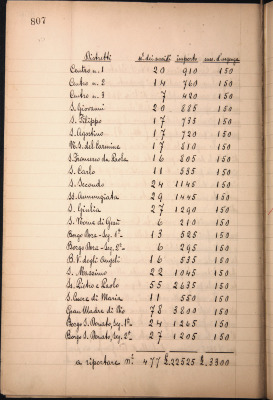 807
Distretti n.° di uniti importo
Centro n. 1 20 910 150
Centro n. 2 14 760 150
Centro n. 3 7 420 150
S. Giovanni 20 885 150
S. Filippo 17 735 150
S. Agostino 17 720 150
M.S. del Carmine 17 810 150
S. Francesco da Paola 16 805 150
S. Carlo 11 535 150
S. Secondo 24 1145 150
SS. Annunziata 29 1445 150
S. Giulia 27 1290 150
S. Nome di Gesù 6 210 150
Borgo Dora - Seg. 1ª 13 525 150
Borgo Dora - Seg. 2ª 6 295 150
B.V. degli Angeli 16 535 150
S. Massimo 22 1045 150
Ss. Pietro e Paolo 55 2635 150
S. Cuore di Maria 11 550 150
Gran Madre di Dio 78 3800 150
Borgo S. Donato, Seg. 1ª 24 1265 150
Borgo S. Donato, Seg. 2ª 27 1205 150
a riportare n.° 477 £ 22525 £ 3300